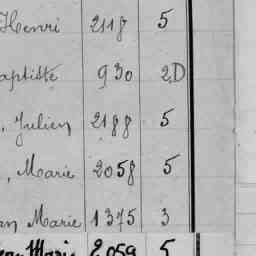 Henri 2118 5
aptiste 930 2,D
, Julien 2188 5
, Marie 2058 5
an Marie 1375 3
Marie 2059 5